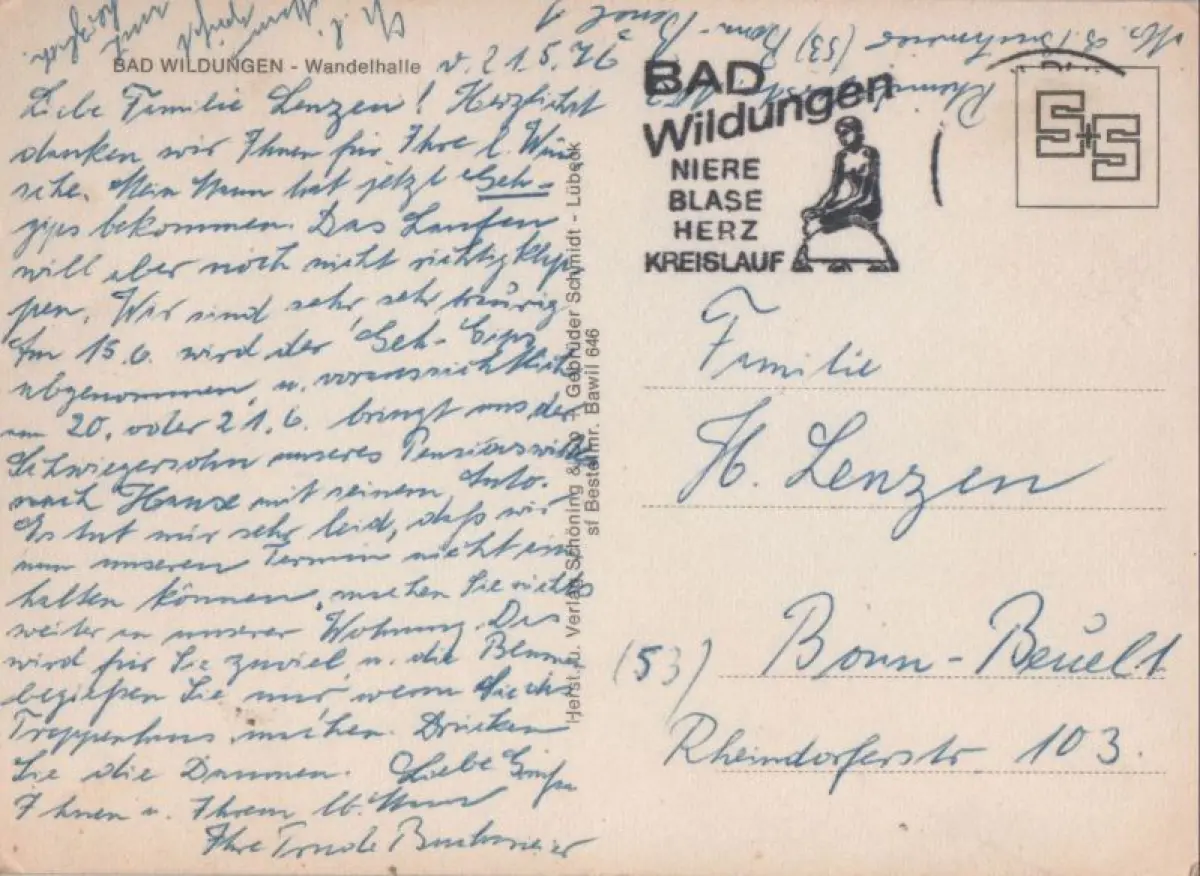 BAD WILDUNGEN - Wandelhalle
v. 21.5.76
Liebe Familie Lenzen! Herzlichst
danken wir Ihnen für Ihre l. Wün
sche. Mein Mann hat jetzt Geh-
gips bekommen. Das Laufen
will aber noch nicht richtig klap
pen. Wir sind sehr, sehr traurig
Am 15.6. wird der Geh-Gips
abgenommen, u. voraussichtlich
am 20. oder 21.6. bringt uns der
Schwiegersohn unseres Pensionswirts
nach Hause mit seinem Auto.
Es tut mir sehr leid, daß wir
nun unseren Termin nicht ein
halten können, machen Sie nichts
weiter in unserer Wohnung. Das
wird für Sie zuviel u. die Blumen
begießen Sie nur, wenn Sie das
Treppenhaus machen. Drücken
Sie die Daumen. Liebe Grüße
Ihnen u. Ihrem lb. Mann
Ihre Trude Buchmeier
Herst. u. Verlag Schöning & Co + Gebrüder Schmidt - Lübeck
sf Bestellnr. Bawil 646
BAD
Wildungen
NIERE
BLASE
HERZ
KREISLAUF
S+S
Familie
H. Lenzen
(53) Bonn-Beuel 1
Rheindorferstr 103.